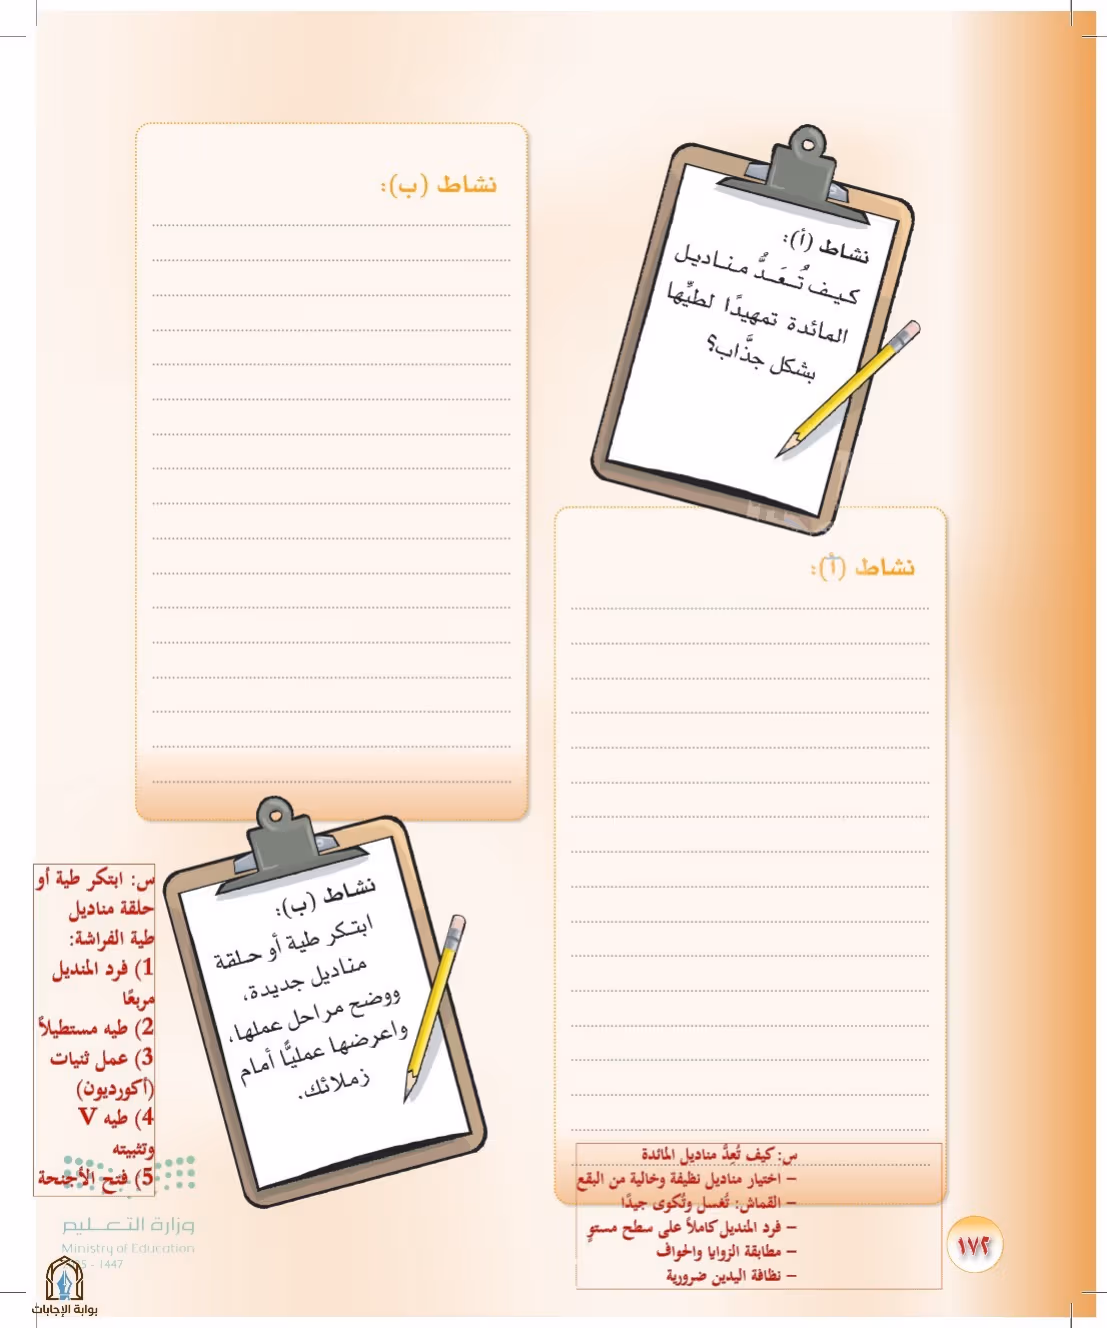 نشاط (أ):
كيف تُعَدُّ مناديل
المائدة تمهيدًا لطيِّها
بشكل جذَّاب؟
نشاط (أ):
س: كيف تُعِدُّ مناديل المائدة
– اختيار مناديل نظيفة وخالية من البقع
– القماش: تُغسل وتُكوى جيدًا
– فرد المنديل كاملاً على سطح مستوٍ
– مطابقة الزوايا والحواف
– نظافة اليدين ضرورية
نشاط (ب):
نشاط (ب):
ابتكر طية أو حلقة
مناديل جديدة،
ووضح مراحل عملها،
واعرضها عمليًّا أمام
زملائك.
س: ابتكر طية أو
حلقة مناديل
طية الفراشة:
1) فرد المنديل
مربعًا
2) طيه مستطيلاً
3) عمل ثنيات
(أكورديون)
4) طيه V
وتثبيته
5) فتح الأجنحة
وزارة التعليم
Ministry of Education
- 1447
١٧٢
بوابة الإجابات